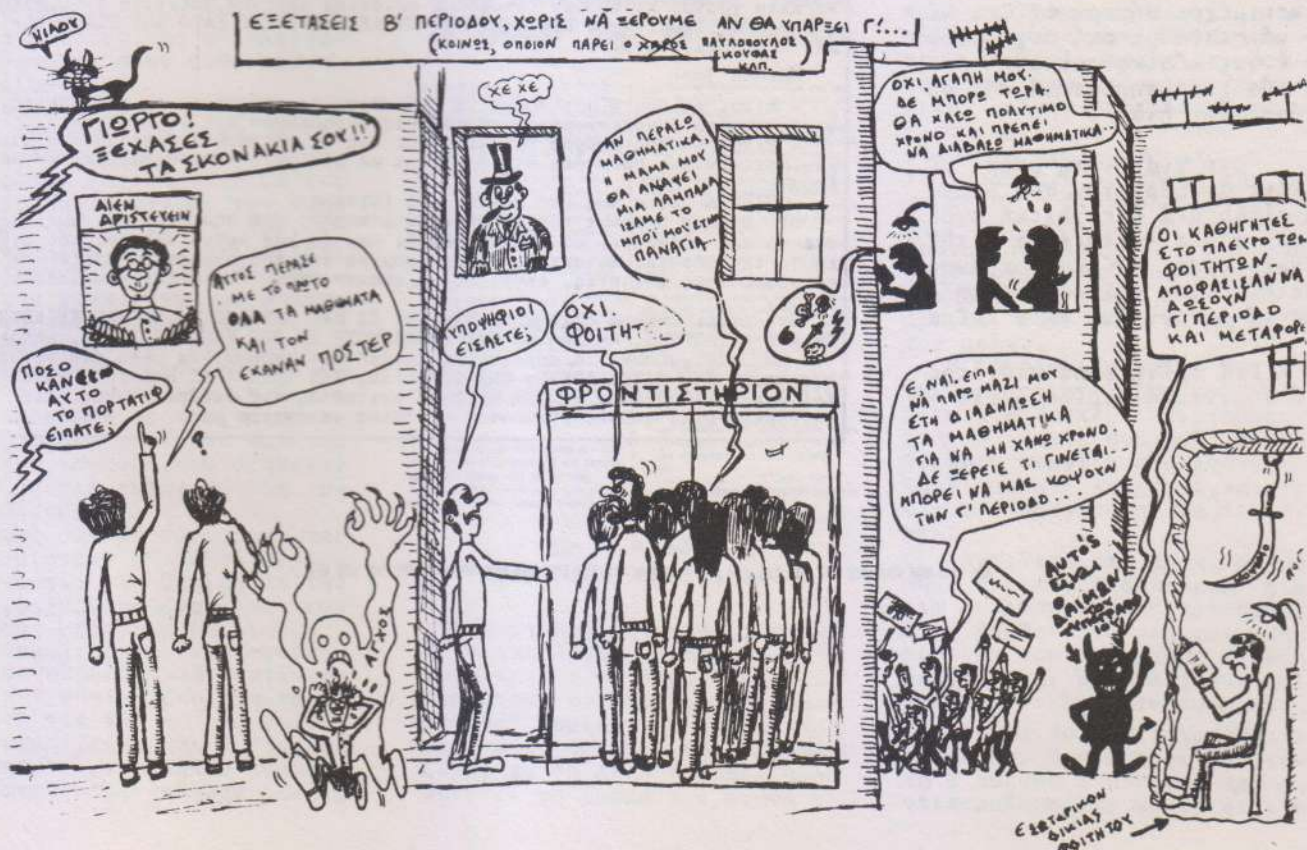 ΕΞΕΤΑΣΕΙΣ Β' ΠΕΡΙΟΔΟΥ, ΧΩΡΙΣ ΝΑ ΞΕΡΟΥΜΕ ΑΝ ΘΑ ΥΠΑΡΞΕΙ Γ'...!
(ΚΟΙΝΩΣ, ΟΠΟΙΟΝ ΠΑΡΕΙ Ο ΧΑΡΟΣ ΠΑΥΛΟΠΟΥΛΟΣ)
ΣΚΟΥΦΑΣ
ΚΛΠ.
ΝΙΑΟΥ
ΓΙΩΡΓΟ!
ΞΕΧΑΣΕΣ
ΤΑ ΣΚΟΝΑΚΙΑ ΣΟΥ!!
ΑΙΕΝ
ΑΡΙΣΤΕΥΕΙΝ
ΑΥΤΟΣ ΠΕΡΑΣΕ
ΜΕ ΤΟ ΠΡΩΤΟ
ΟΛΑ ΤΑ ΜΑΘΗΜΑΤΑ
ΚΑΙ ΤΟΝ
ΕΚΑΝΑΝ ΠΟΣΤΕΡ
ΠΟΣΟ
ΚΑΝΕΙ
ΑΥΤΟ
ΤΟ ΠΟΡΤΑΤΙΦ
ΕΙΠΑΤΕ;
?
ΑΓΧΟΣ
ΧΕ ΧΕ
ΑΝ ΠΕΡΑΣΩ
ΜΑΘΗΜΑΤΙΚΑ,
Η ΜΑΜΑ ΜΟΥ
ΘΑ ΑΝΑΨΕΙ
ΜΙΑ ΛΑΜΠΑΔΑ
ΙΣΑΜΕ ΤΟ
ΜΠΟΪ ΜΟΥ ΣΤΗΝ
ΠΑΝΑΓΙΑ...
ΥΠΟΨΗΦΙΟΙ
ΕΙΣΑΣΤΕ;
ΟΧΙ.
ΦΟΙΤΗΤ...
ΦΡΟΝΤΙΣΤΗΡΙΟΝ
ΟΧΙ, ΑΓΑΠΗ ΜΟΥ.
ΔΕ ΜΠΟΡΩ ΤΩΡΑ.
ΘΑ ΧΑΣΩ ΠΟΛΥΤΙΜΟ
ΧΡΟΝΟ ΚΑΙ ΠΡΕΠΕΙ
ΝΑ ΔΙΑΒΑΣΩ ΜΑΘΗΜΑΤΙΚΑ.
Ε, ΝΑΙ. ΕΙΠΑ
ΝΑ ΠΑΡΩ ΜΑΖΙ ΜΟΥ
ΣΤΗ ΔΙΑΔΗΛΩΣΗ
ΤΑ ΜΑΘΗΜΑΤΙΚΑ
ΓΙΑ ΝΑ ΜΗ ΧΑΝΩ ΧΡΟΝΟ.
ΔΕ ΞΕΡΕΙΣ ΤΙ ΓΙΝΕΤΑΙ.
ΜΠΟΡΕΙ ΝΑ ΜΑΣ ΚΟΨΟΥΝ
ΤΗΝ Γ' ΠΕΡΙΟΔΟ...
ΟΙ ΚΑΘΗΓΗΤΕΣ
ΣΤΟ ΠΛΕΥΡΟ ΤΩΝ
ΦΟΙΤΗΤΩΝ.
ΑΠΟΦΑΣΙΣΑΝ ΝΑ
ΔΩΣΟΥΝ
Γ' ΠΕΡΙΟΔΟ
ΚΑΙ ΜΕΤΑΦΟΡΑ
ΑΥΤΟΣ
ΕΙΝΑΙ
Ο ΔΑΙΜΩΝ
ΤΟΥ
ΤΥΠΟΓΡΑΦΕΙΟΥ
ΕΞΩΤΕΡΙΚΟΝ
ΟΙΚΙΑΣ
ΦΟΙΤΗΤΟΥ